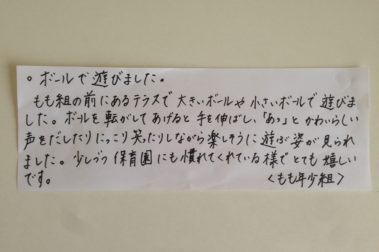 ○ ボールで遊びました。
もも組の前にあるテラスで大きいボールや小さいボールで遊びま
した。ボールを転がしてあげると手を伸ばし、「あっ」とかわいらしい
声をだしたりにっこり笑ったりしながら楽しそうに遊ぶ姿が見られ
ました。少しづつ保育園にも慣れてくれている様でとても嬉しい
です。 〈もも年少組〉